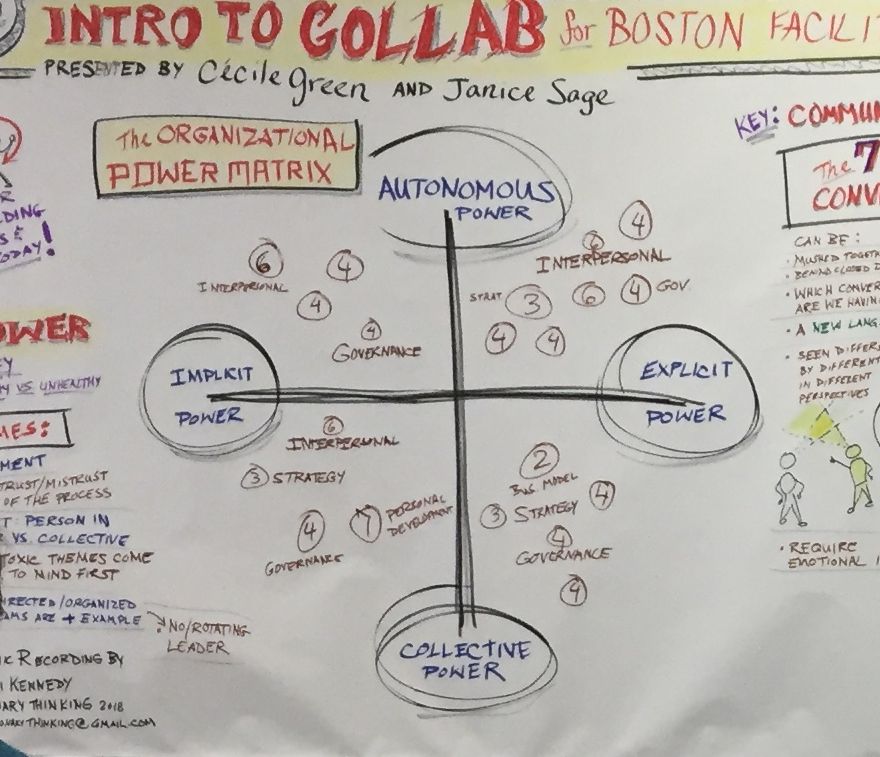 INTRO TO GOLLAB for BOSTON FACILI
PRESENTED BY Cécile Green AND Janice Sage
The ORGANIZATIONAL
POWER MATRIX
AUTONOMOUS
POWER
6
4
INTERPERSONAL
4
4
GOVERNANCE
4
6
INTERPERSONAL
STRAT.
3
6
4 GOV.
4
4
IMPLICIT
POWER
EXPLICIT
POWER
6
INTERPERSONAL
3 STRATEGY
4
GOVERNANCE
7 PERSONAL
DEVELOPMENT
2
BUS. MODEL
4
3 STRATEGY
4
GOVERNANCE
4
COLLECTIVE
POWER
DING
S &
TODAY!
OWER
EY
Y VS. UNHEALTHY
MES:
MENT
TRUST/MISTRUST
OF THE PROCESS
T: PERSON IN
VS. COLLECTIVE
TOXIC THEMES COME
TO MIND FIRST
RECTED/ORGANIZED
AMS ARE + EXAMPLE
NO/ROTATING
LEADER
IC RECORDING BY
KENNEDY
ARY THINKING 2018
ONARYTHINKING@GMAIL.COM
KEY: COMMUN
The 7
CONV
CAN BE:
• MUSHED TOGETH
• BEHIND CLOSED D
• WHICH CONVER
ARE WE HAVIN
• A NEW LANG
• SEEN DIFFER
BY DIFFERENT
IN DIFFERENT
PERSPECTIVES
• REQUIRE
EMOTIONAL I